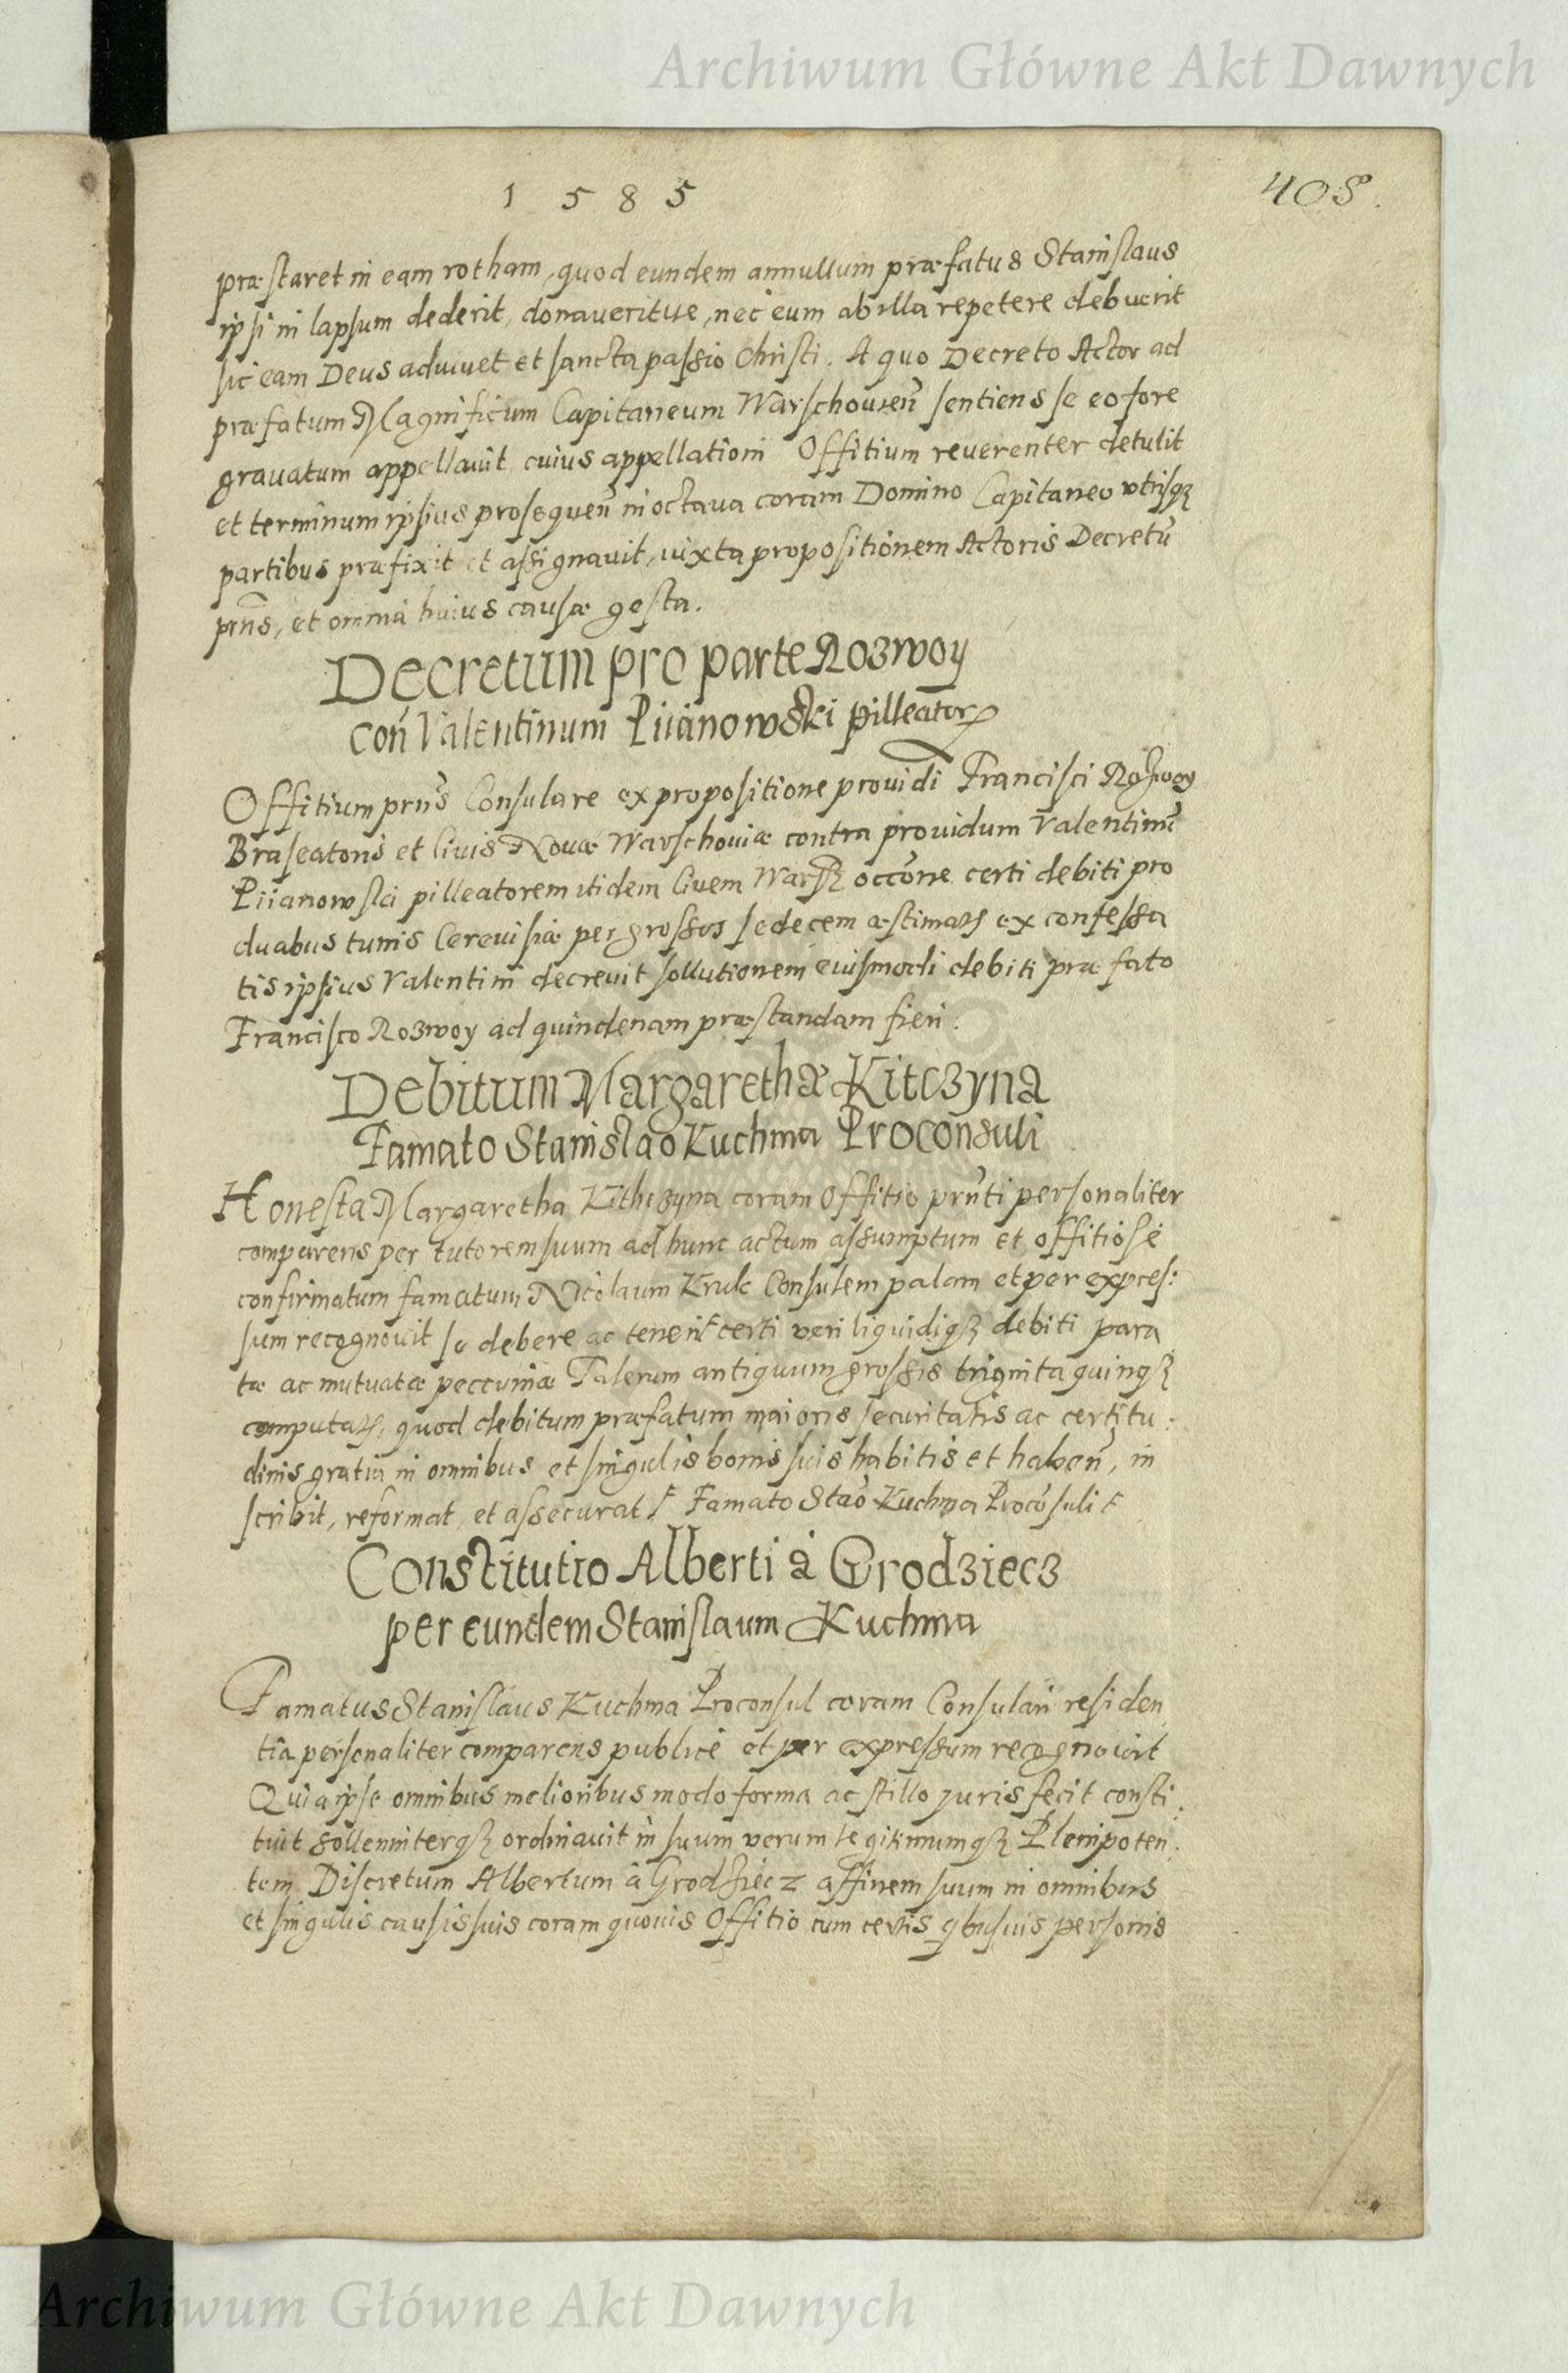 Archiwum Główne Akt Dawnych
1585
408.
præstaret in eam rotham, quod eundem annullum præfatus Stanislaus
ipsi in lapsum dederit, donaveritue, nec eum ab illa repetere debuerit
sic eam Deus adiuuet et sancta passio Christi. A quo Decreto Actor ad
præfatum Magnificum Capitaneum Warschouień sentiens se eo fore
gravatum appellauit cuius appellationi Offitium reuerenter detulit
et terminum ipsius prosequeń in octaua coram Domino Capitaneo vtrisqȝ
partibus præfixit et assignauit, iuxta propositionem Actoris Decretū
pñs, et omnia huius causæ gesta.
Decretum pro parte Rozwoy
coñ Valentinum Piianowski pilleator
Offitium prñs Consulare ex propositione prouidi Francisci Rozwoy
Braseatoris et Ciuis Nouæ Warschouiæ contra prouidum Valentinū
Piianowski pilleatorem itidem Ciuem Warsz occōne certi debiti pro
duabus tunis Cereuisiæ per grossos sedecem æstimat ex confessa
tis ipsius Valentini decreuit sollutionem euismodi debiti præfato
Francisco Rozwoy ad quindenam præstandam fieri.
Debitum Margarethæ Kitczyna
Famato Stanislao Kuchma Proconsuli
Honesta Margaretha Kithczyna coram Offitio prñti personaliter
comparens per tutorem suum ad hunc actum assumptum et offitiose
confirmatum famatum Nicolaum Kruk Consulem palam et per expres:
sum recognouit se debere ac teneri certi veri liquidiqȝ debiti para
tæ ac mutuatæ peccuniæ Talerum antiquum grossis triginta quinqȝ
computat, quod debitum præfatum maioris securitatis ac certitu:
dinis gratia in omnibus et singulis bonis suis habitis et habeñ, in
scribit, reformat, et assecurat Famato Stāo Kuchma Procōsuli
Constitutio Alberti à Grodziecz
per eundem Stanislaum Kuchma
Famatus Stanislaus Kuchma Proconsul coram Consulari residen
tia personaliter comparens publice et per expressum recognouit
Quia ipse omnibus melioribus modo forma ac stillo juris fecit consti:
tuit solleniterqȝ ordinauit in suum verum legitimumqȝ Plenipoten:
tem Discretum Albertum à Grodziecz affinem suum in omnibus
et singulis causis suis coram quouis Offitio cum cetis qbusuis personis
Archiwum Główne Akt Dawnych